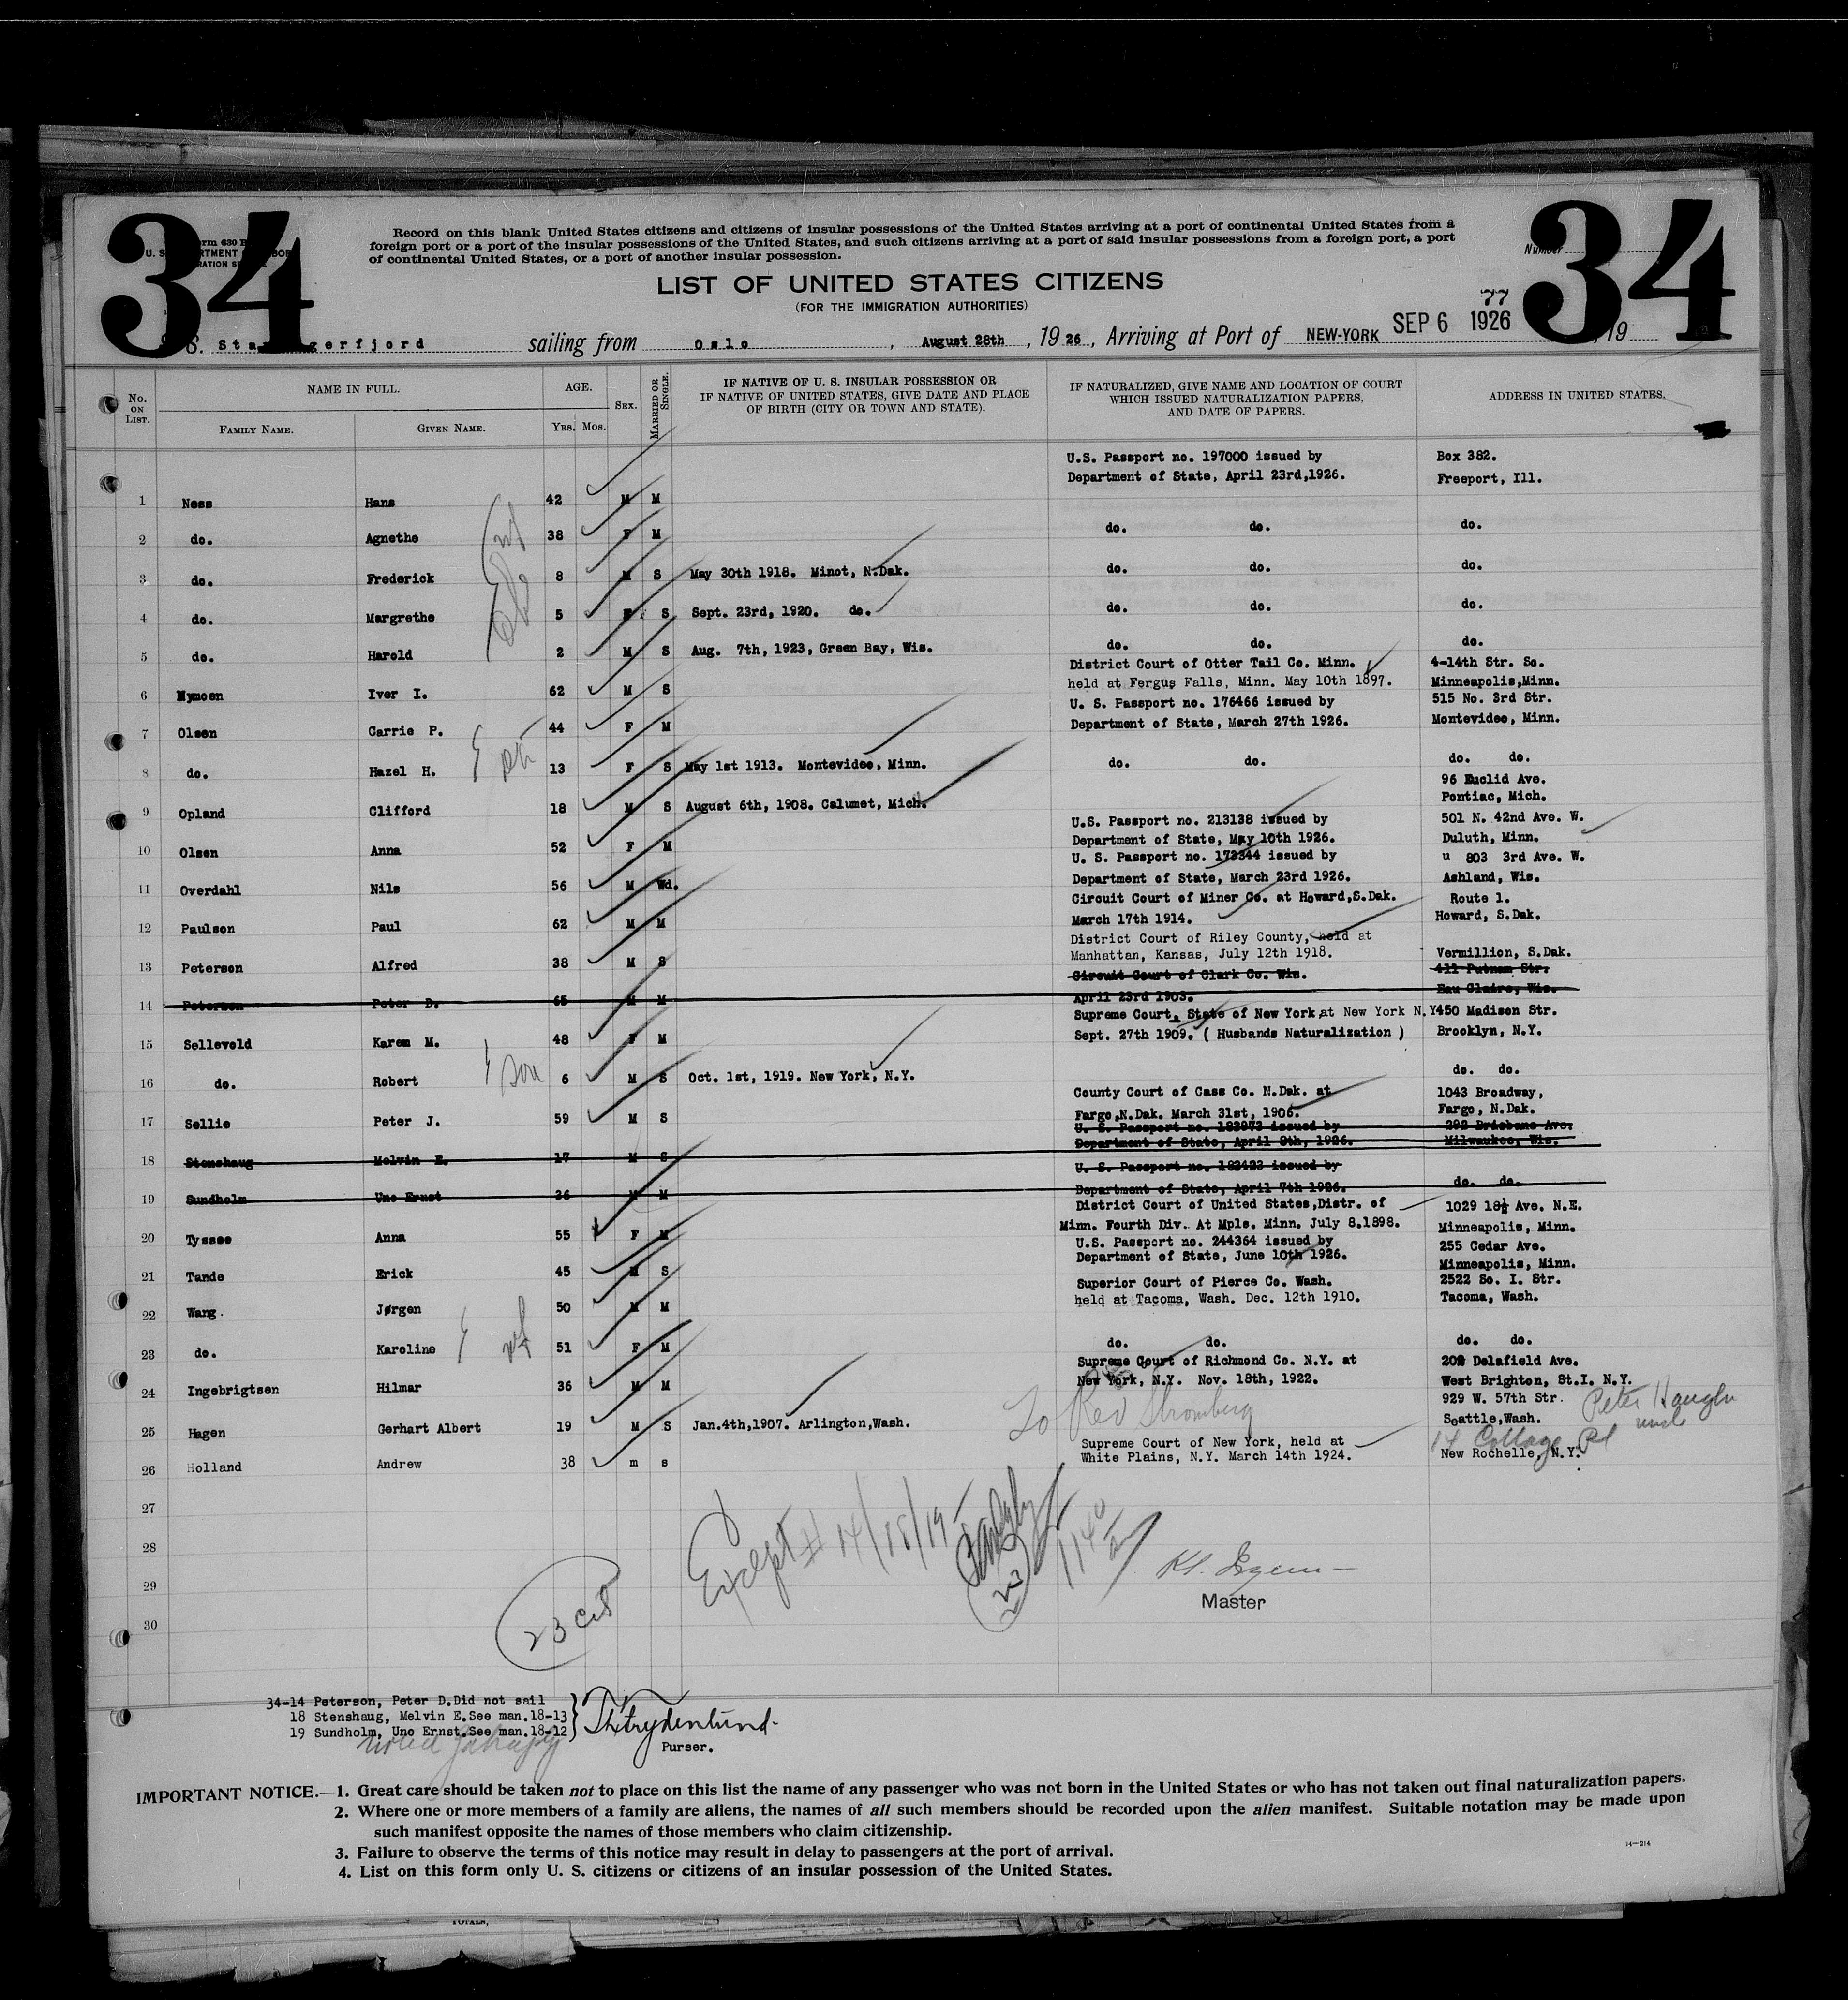 34
34
Form 630 B
U. S. DEPARTMENT OF LABOR
IMMIGRATION SERVICE
Record on this blank United States citizens and citizens of insular possessions of the United States arriving at a port of continental United States from a
foreign port or a port of the insular possessions of the United States, and such citizens arriving at a port of said insular possessions from a foreign port, a port
of continental United States, or a port of another insular possession.
Number
LIST OF UNITED STATES CITIZENS
(FOR THE IMMIGRATION AUTHORITIES)
77
S. S. Stavangerfjord sailing from Oslo, August 28th, 1926, Arriving at Port of NEW-YORK SEP 6 1926, 19
No. ON LIST. NAME IN FULL. AGE. SEX. MARRIED OR SINGLE. IF NATIVE OF U. S. INSULAR POSSESSION OR IF NATIVE OF UNITED STATES, GIVE DATE AND PLACE OF BIRTH (CITY OR TOWN AND STATE). IF NATURALIZED, GIVE NAME AND LOCATION OF COURT WHICH ISSUED NATURALIZATION PAPERS, AND DATE OF PAPERS. ADDRESS IN UNITED STATES.
FAMILY NAME. GIVEN NAME. YRS. MOS.
U.S. Passport no. 197000 issued by Box 382.
Department of State, April 23rd,1926. Freeport, Ill.
1 Ness Hans 42 M M
2 do. Agnethe 38 F M do. do. do.
wf
3 do. Frederick 8 M S May 30th 1918. Minot, N.Dak. do. do. do.
4 do. Margrethe 5 F S Sept. 23rd, 1920. do. do. do. do.
5 do. Harold 2 M S Aug. 7th, 1923, Green Bay, Wis. do. do. do.
District Court of Otter Tail Co. Minn. 4-14th Str. So.
6 Nymoen Iver I. 62 M S held at Fergus Falls, Minn. May 10th 1897. Minneapolis,Minn.
U. S. Passport no. 176466 issued by 515 No. 3rd Str.
7 Olsen Carrie P. 44 F M Department of State, March 27th 1926. Montevideo, Minn.
8 do. Hazel H. 13 F S May 1st 1913. Montevideo, Minn. do. do. do. do.
96 Euclid Ave.
Pontiac, Mich.
9 Opland Clifford 18 M S August 6th, 1908. Calumet, Mich.
U.S. Passport no. 213138 issued by 501 N. 42nd Ave. W.
10 Olsen Anna 52 F M Department of State, May 10th 1926. Duluth, Minn.
U. S. Passport no. 173344 issued by u 803 3rd Ave. W.
11 Overdahl Nils 56 M Wd. Department of State, March 23rd 1926. Ashland, Wis.
Circuit Court of Miner Co. at Howard,S.Dak. Route 1.
12 Paulson Paul 62 M M March 17th 1914. Howard, S.Dak.
District Court of Riley County, held at
13 Peterson Alfred 38 M S Manhattan, Kansas, July 12th 1918. Vermillion, S.Dak.
Circuit Court of Clark Co. Wis. 411 Putnam Str.
14 Peterson Peter D. 65 M M April 23rd 1903. Eau Claire, Wis.
Supreme Court, State of New York,at New York N.Y 450 Madison Str.
15 Sellevold Karen M. 48 F M Sept. 27th 1909. ( Husbands Naturalization ) Brooklyn, N.Y.
16 do. Robert son 6 M S Oct. 1st, 1919. New York, N.Y. do. do.
County Court of Cass Co. N.Dak. at 1043 Broadway,
17 Sellie Peter J. 59 M S Fargo,N.Dak. March 31st, 1906. Fargo, N.Dak.
U. S. Passport no. 183973 issued by 292 Brisbane Ave.
Department of State, April 9th, 1926. Milwaukee, Wis.
18 Stenshaug Melvin E. 17 M S
U. S. Passport no. 183423 issued by
19 Sundholm Uno Ernst 36 M M Department of State, April 7th 1926. do. do.
District Court of United States,Distr. of 1029 18½ Ave. N.E.
20 Tyssee Anna 55 F M Minn. Fourth Div. At Mpls. Minn. July 8.1898. Minneapolis, Minn.
U.S. Passport no. 244364 issued by 255 Cedar Ave.
21 Tande Erick 45 M S Department of State, June 10th 1926. Minneapolis, Minn.
Superior Court of Pierce Co. Wash. 2522 So. I. Str.
22 Wang. Jørgen 50 M M held at Tacoma, Wash. Dec. 12th 1910. Tacoma, Wash.
23 do. Karoline wf 51 F M do. do. do. do.
Supreme Court of Richmond Co. N.Y. at 202 Delafield Ave.
24 Ingebrigtsen Hilmar 36 M M New York, N.Y. Nov. 18th, 1922. West Brighton, St.I. N.Y.
929 W. 57th Str. Peter Haugen
25 Hagen Gerhart Albert 19 M S Jan.4th,1907. Arlington,Wash. To Rev Stromberg Seattle,Wash. uncle
14 Cottage Pl
Supreme Court of New York, held at
26 Holland Andrew 38 m s White Plains, N.Y. March 14th 1924. New Rochelle, N.Y.
27
28
29
30
Except # 14/18/19
23
1140
Master
23 cit
34-14 Peterson, Peter D.Did not sail
18 Stenshaug, Melvin E.See man.18-13
19 Sundholm, Uno Ernst.See man.18-12
noted
Purser.
IMPORTANT NOTICE.—1. Great care should be taken not to place on this list the name of any passenger who was not born in the United States or who has not taken out final naturalization papers.
2. Where one or more members of a family are aliens, the names of all such members should be recorded upon the alien manifest. Suitable notation may be made upon
such manifest opposite the names of those members who claim citizenship.
3. Failure to observe the terms of this notice may result in delay to passengers at the port of arrival.
4. List on this form only U. S. citizens or citizens of an insular possession of the United States.
14—214
TOTALS,